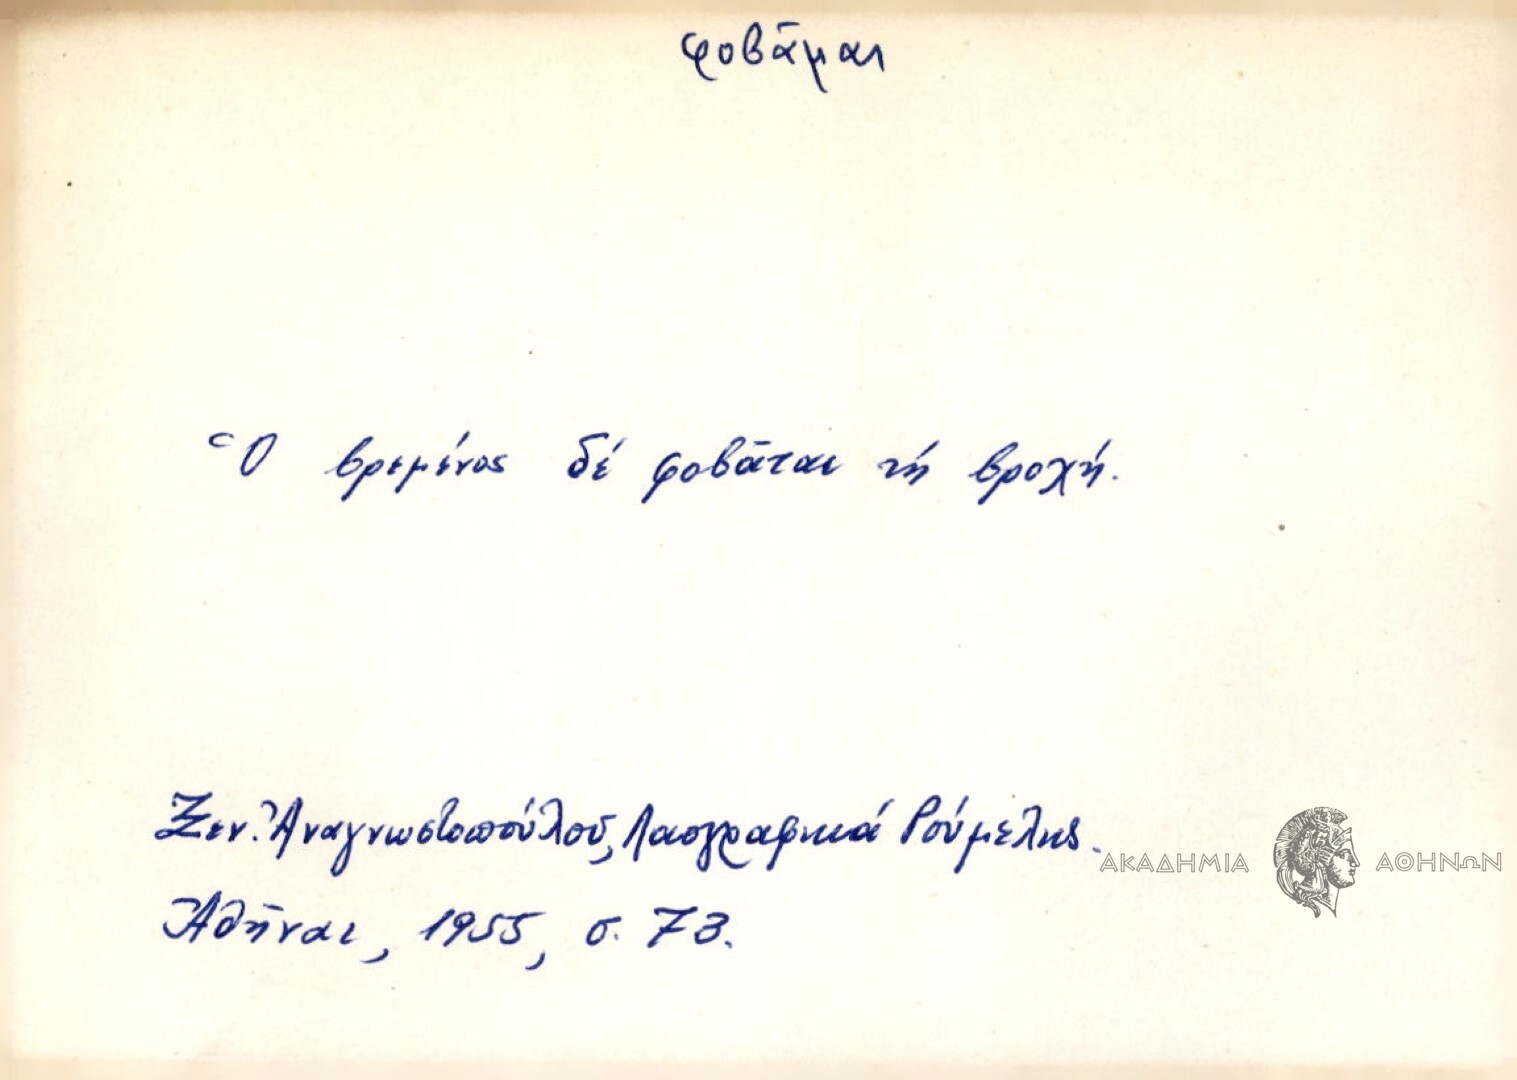 φοβᾶμαι
Ὁ βρεμένος δέ φοβᾶται τή βροχή.
Ξεν. Ἀναγνωστοπούλου, Λαογραφικά Ρούμελης.
ΑΚΑΔΗΜΙΑ ΑΘΗΝΩΝ
Ἀθῆναι, 1955, σ. 73.